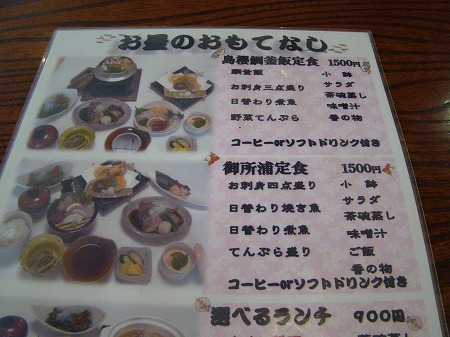 お昼のおもてなし
島櫻鯛釜飯定食 1500円
鯛釜飯 小鉢
お刺身三点盛り サラダ
日替わり煮魚 茶碗蒸し
野菜てんぷら 味噌汁
香の物
コーヒーorソフトドリンク付き
御所浦定食 1500円
お刺身四点盛り 小鉢
日替わり焼き魚 サラダ
日替わり煮魚 茶碗蒸し
てんぷら盛り 味噌汁
ご飯
香の物
コーヒーorソフトドリンク付き
選べるランチ 900円
茶碗蒸し